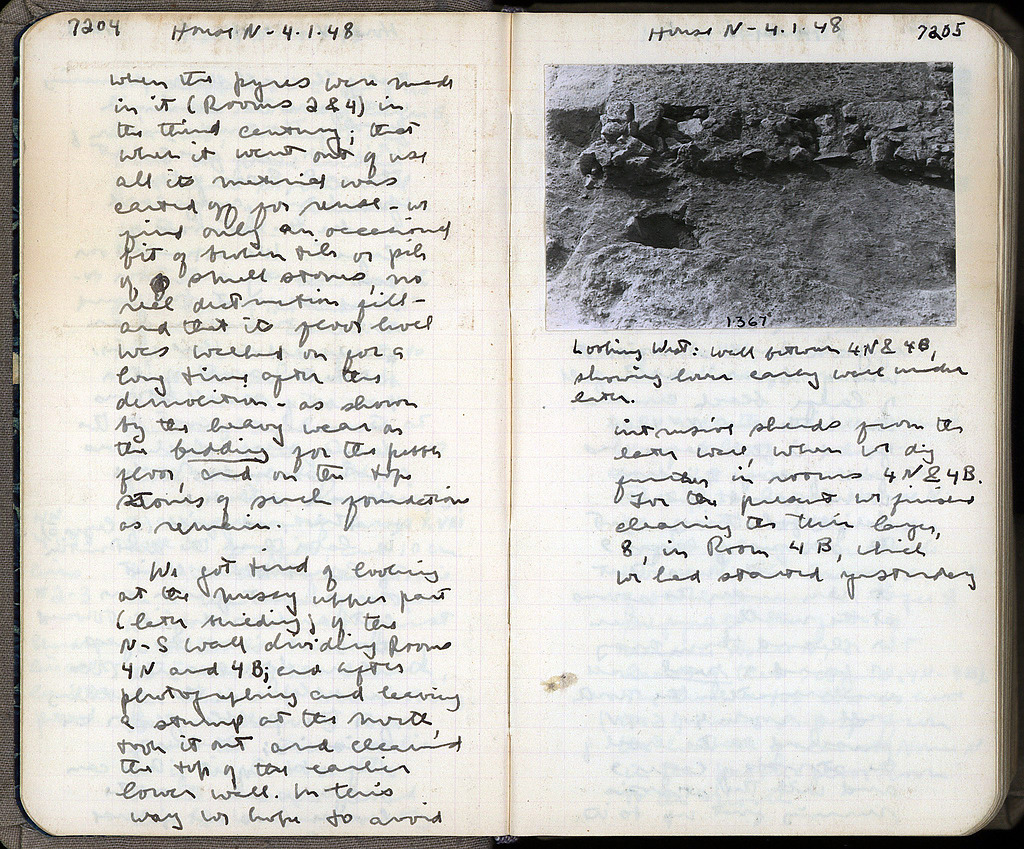 7204 House N - 4.1.48
when the pyres were made
in it (Rooms 2 & 4) in
the third century; that
when it went out of use
all its material was
carted off for reuse - we
find only an occasional
bit of broken tile or pile
of small stones, no
real destruction fill -
and that its floor level
was walked on for a
long time after this
demolition - as shown
by the heavy wear on
the bedding for the pebble
floor, and on the top
stones of such foundations
as remain.
We got tired of looking
at the messy upper part
(later mending) of the
N-S wall dividing Rooms
4N and 4B; and after
photographing and leaving
a stump at the north,
took it out and cleaned
the top of the earlier
lower wall. In this
way we hope to avoid
House N - 4.1.48 7205
1367
Looking West: wall between 4N & 4B,
showing lower early wall under
later.
intrusive sherds from the
later wall, when we dig
further in rooms 4N & 4B.
For the present we finished
clearing the thin layer,
8, in Room 4B which
we had started yesterday